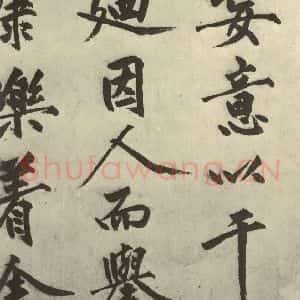 意以干
因人而舉
樂着
Shufawang.CN